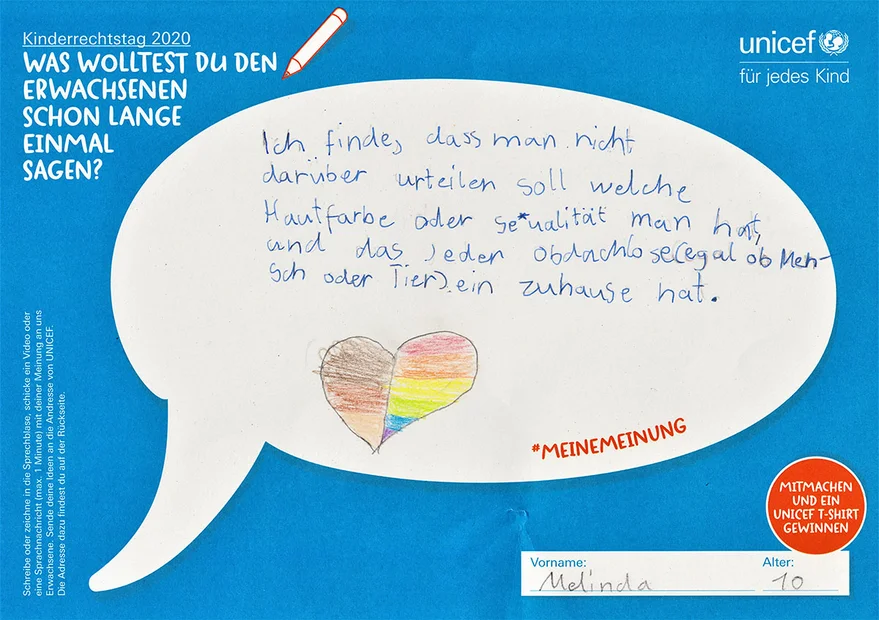 Kinderrechtstag 2020
WAS WOLLTEST DU DEN
ERWACHSENEN
SCHON LANGE
EINMAL
SAGEN?
unicef
für jedes Kind
Ich finde, dass man nicht
darüber urteilen soll welche
Hautfarbe oder se*ualität man hat,
und das Jeder obdachlose(egal ob Men-
sch oder Tier) ein zuhause hat.
#MEINEMEINUNG
Schreibe oder zeichne in die Sprechblase, schicke ein Video oder
eine Sprachnachricht (max. 1 Minute) mit deiner Meinung an uns
Erwachsene. Sende deine Ideen an die Andresse von UNICEF.
Die Adresse dazu findest du auf der Rückseite.
MITMACHEN
UND EIN
UNICEF T-SHIRT
GEWINNEN
Vorname: Alter:
Melinda 10